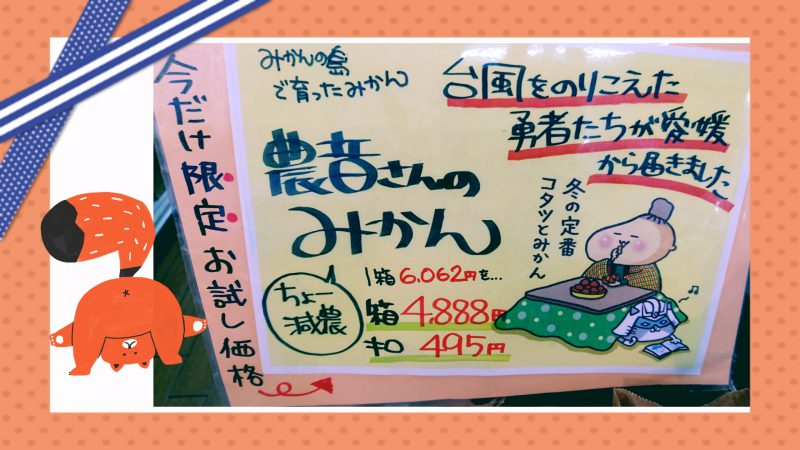 今だけ限定お試し価格
みかんの島
で育ったみかん
台風をのりこえた
勇者たちが愛媛
から届きました
農音さんの
みかん
冬の定番
コタツとみかん
ちょー
減農
1箱 6.062円を…
箱 4.888円
キロ 495円